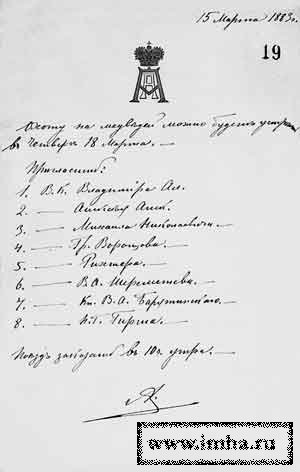 15 Марта 1883 г.
19
Охоту на медведей можно будет устроить
в Четверг 18 Марта. —
Пригласить:
1. В.К. Владимира Ал.
2. — Алексея Алек.
3. — Михаила Николаевича.
4. — Гр. Воронцова.
5. — Рихтера. —
6. — В.А. Шереметева. —
7. — Кн. В.А. Барятинского. —
8. — Н.Г. Гирша. —
Поезд заказать в 10 ч. утра. —
А.
www.imha.ru